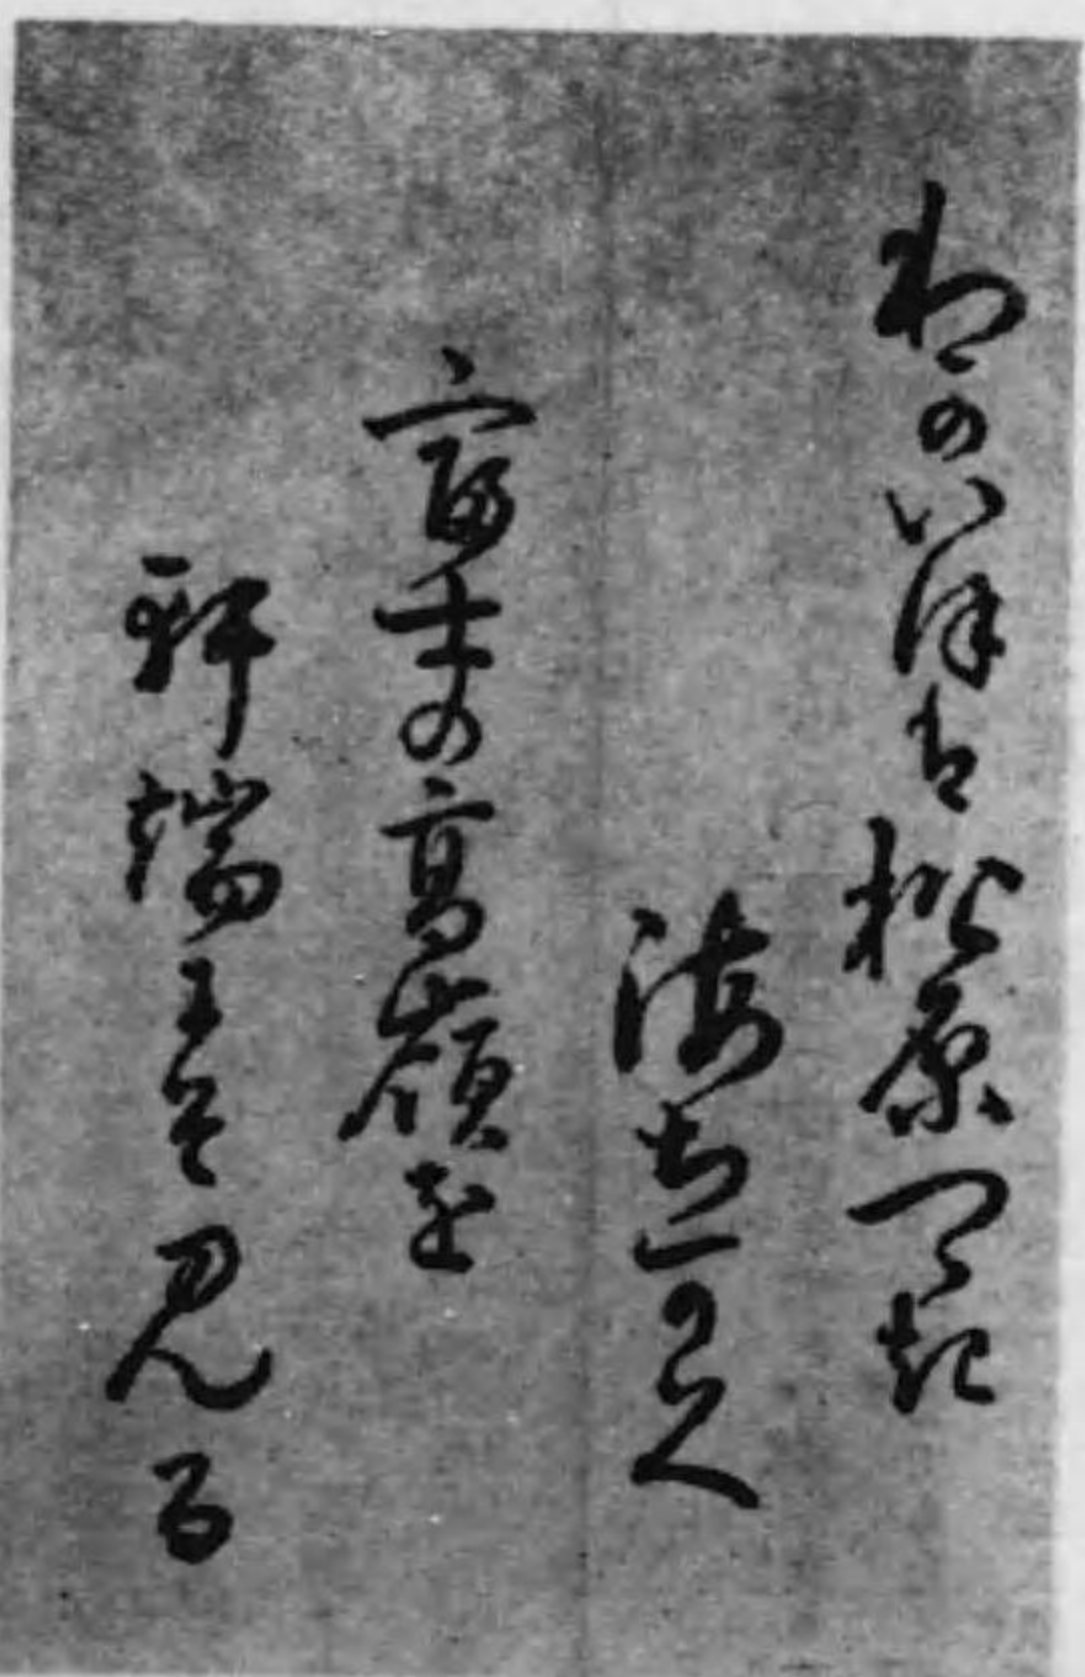 わかいほは松原つゝき
海ちかく
富士の高嶺を
軒端にそ見る